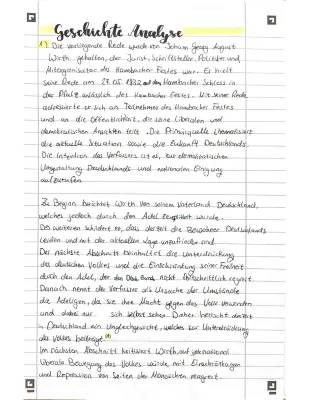 Geschichte Analyse
1) Die vorliegende Rede wurde von Johann Georg August
Wirth gehalten, der Jurist, Schriftsteller, Politiker und
Mitorganisator des Hambacher Festes war. Er hielt
seine Rede am 27.05.1832 auf dem Hambacher Schloss in
der Pfalz anlässlich des Hambacher Festes. Mit seiner Rede
adressierte er sich an Teilnehmer des Hambacher Festes
und an die Öffentlichkeit, die seine liberalen und
demokratischen Ansichten teilt. Die Primärquelle thematisiert
die aktuelle Situation sowie die Zukunft Deutschlands.
Die Intention des Verfassers ist es, zur demokratischen
Umgestaltung Deutschlands und nationalen Einigung
aufzurufen.
Zu Beginn berichtet Wirth von seinem Vaterland Deutschland,
welches jedoch durch den Adel wurde.
Des weiteren schildert er, dass derzeit die Bewohner Deutschlands
leiden und mit der aktuellen Lage unzufrieden sind.
Der nächste Abschnitt beinhaltet die Unterdrückung
des deutschen Volkes und die Einschränkung seiner Freiheit
durch den Adel, der den nicht fortschrittlich
Danach nennt der Verfasser als Ursache der Umstände
die Adeligen, da sie ihre Macht gegen das Volk verwenden
und dabei nur sich selbst sehen. Daher herrscht derzeit
in Deutschland ein Ungleichgewicht, welches zur Unterdrückung
des Volkes beiträgt.
Im nächsten Abschnitt kritisiert Wirth, auf jede national
liberale Bewegung des Volkes würde mit Einschränkungen
und Repression von Seiten der Monarchen reagiert.